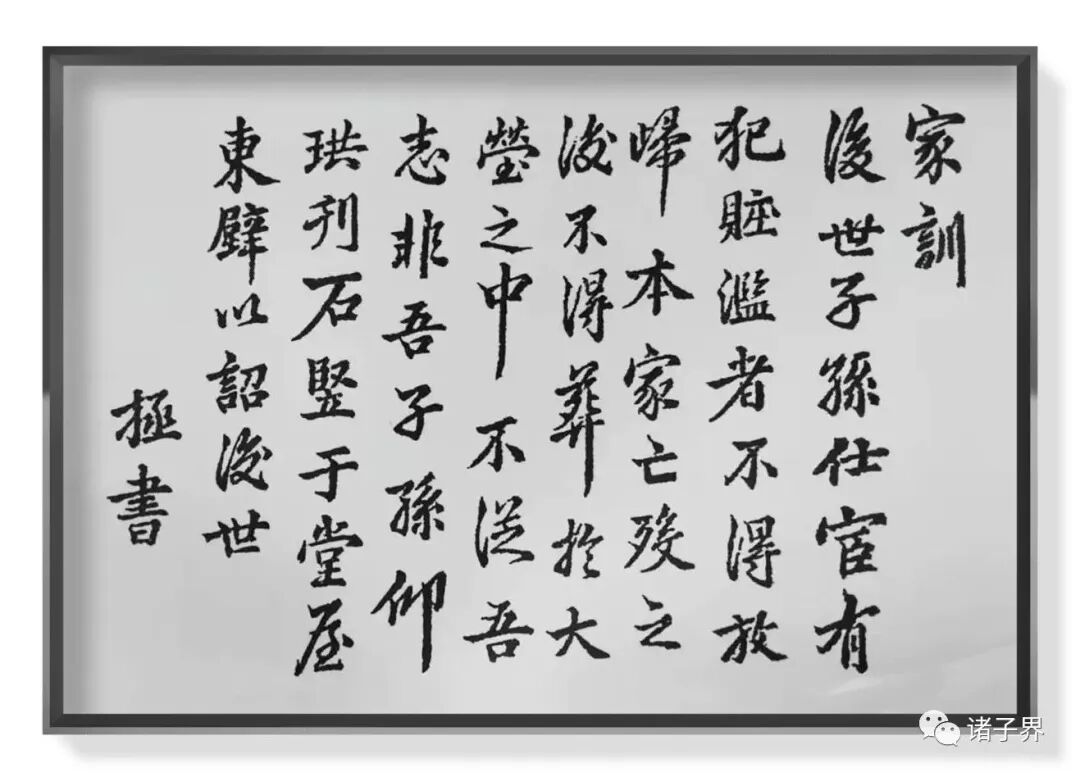 家訓
後世子孫仕宦有
犯賍濫者不得放
歸本家亡歿之
後不得葬於大
塋之中不從吾
志非吾子孫仰
珙刊石竪于堂屋
東壁以詔後世
極書
诸子界